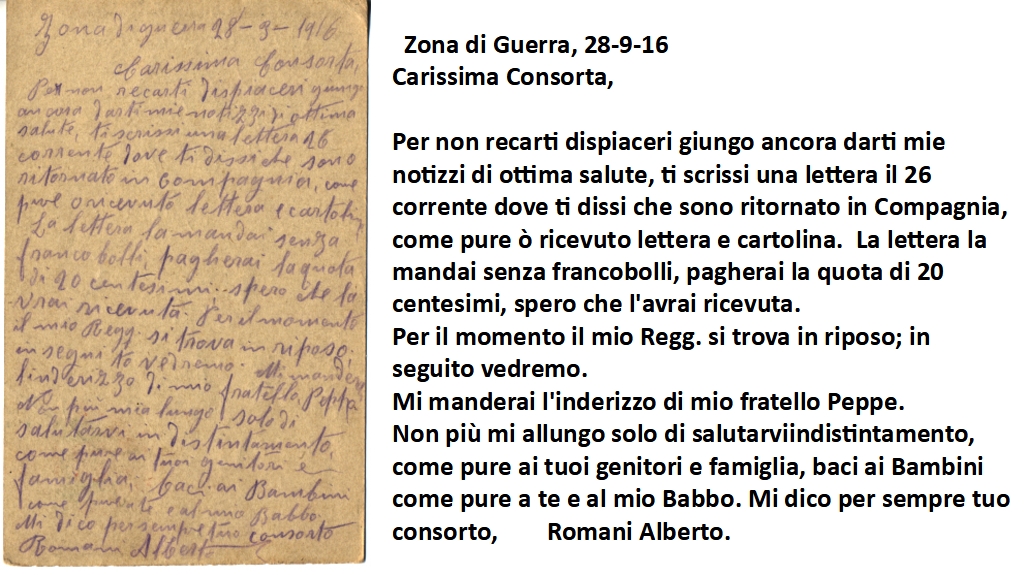 Zona di guerra 28-9-1916
Carissima Consorta,
Per non recarti dispiaceri giungo
ancora darti mie notizzi di ottima
salute, ti scrissi una lettera 26
corrente dove ti dissi che sono
ritornato in Compagnia, come
pure o ricevuto lettera e cartolina
La lettera la mandai senza
francobolli, pagherai la quota
di 20 centesimi.. spero che la
vrai ricevuta. Per il momento
il mio Regg. si trova in riposo.
in seguito vedremo. Mi manderai
l'inderizzo di mio fratello Peppe
Non più mia lungo solo di
salutarvi in distintamento,
come pure ai tuoi genitori e
famiglia, baci ai Bambini
come pure a te e al mio Babbo
Mi dico per sempre tuo consorto
Romani Alberto
Zona di Guerra, 28-9-16
Carissima Consorta,
Per non recarti dispiaceri giungo ancora darti mie
notizzi di ottima salute, ti scrissi una lettera il 26
corrente dove ti dissi che sono ritornato in Compagnia,
come pure ò ricevuto lettera e cartolina. La lettera la
mandai senza francobolli, pagherai la quota di 20
centesimi, spero che l'avrai ricevuta.
Per il momento il mio Regg. si trova in riposo; in
seguito vedremo.
Mi manderai l'inderizzo di mio fratello Peppe.
Non più mi allungo solo di salutarviindistintamento,
come pure ai tuoi genitori e famiglia, baci ai Bambini
come pure a te e al mio Babbo. Mi dico per sempre tuo
consorto, Romani Alberto.